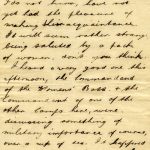 I do not know, have not
yet had the pleasure of
making their acquaintance.
It will seem rather strange
being saluted by a pack
of women, don't you think.
I heard a very good one this
afternoon, the Commandant
of the Womens' Batt. & the
Commandant of one of the
other Camps here, were
discussing something of
military importance of course,
over a cup of tea. It happened